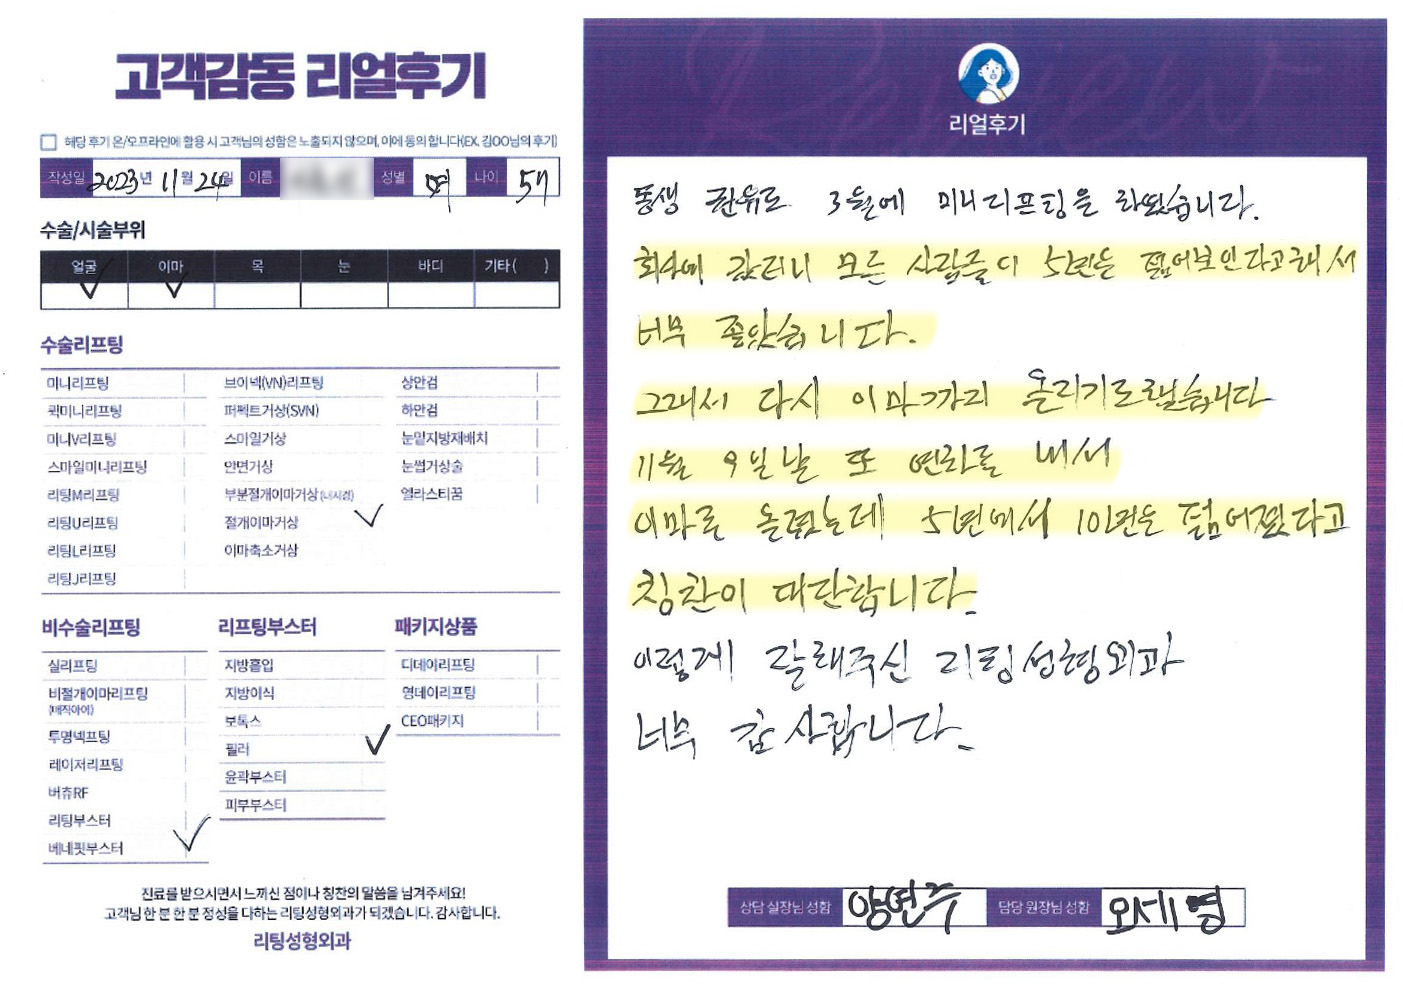 고객감동 리얼후기
해당 후기 온/오프라인에 활용 시 고객님의 성함은 노출되지 않으며, 이에 동의 합니다(EX. 김OO님의 후기)
작성일 2023년 11월 24일 이름 성별 여 나이 57
수술/시술부위
얼굴 이마 목 눈 바디 기타( )
수술리프팅
미니리프팅 브이넥(VN)리프팅 상안검
퀵미니리프팅 퍼펙트거상(SVN) 하안검
미니V리프팅 스마일거상 눈밑지방재배치
스마일미니리프팅 안면거상 눈썹거상술
리팅M리프팅 부분절개이마거상(내시경) 엘라스티꿈
리팅U리프팅 절개이마거상
리팅L리프팅 이마축소거상
리팅J리프팅
비수술리프팅 리프팅부스터 패키지상품
실리프팅 지방흡입 디데이리프팅
비절개이마리프팅 지방이식 영데이리프팅
(매직아이)
보톡스 CEO패키지
투명넥프팅 필러
레이저리프팅 윤곽부스터
버츄RF 피부부스터
리팅부스터
베네핏부스터
진료를 받으시면서 느끼신 점이나 칭찬의 말씀을 남겨주세요!
고객님 한 분 한 분 정성을 다하는 리팅성형외과가 되겠습니다. 감사합니다.
리팅성형외과
Review
리얼후기
동생 권유로 3월에 미니리프팅을 하였습니다.
회사에 갔더니 모든 사람들이 5년은 젊어보인다고해서
너무 좋았습니다.
그래서 다시 이마까지 올리기로했습니다
11월 9일날 또 연차를 내서
이마를 올렸는데 5년에서 10년은 젊어졌다고
칭찬이 대단합니다.
이렇게 잘해주신 리팅성형외과
너무 감사합니다.
상담 실장님 성함 양연주 담당 원장님 성함 오세영